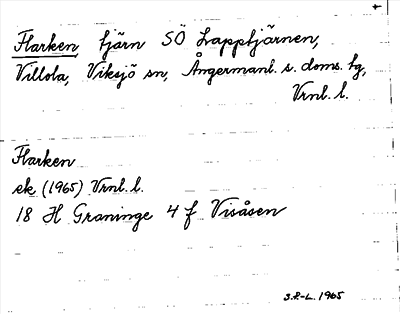 Flarken tjärn SÖ Lapptjärnen,
Villola, Viksjö sn, Ångermanl. s. doms. tg,
Vrnl. l.
Flarken
ek (1965) Vrnl. l.
18 H Graninge 4 f Visåsen
S.P.-L. 1965